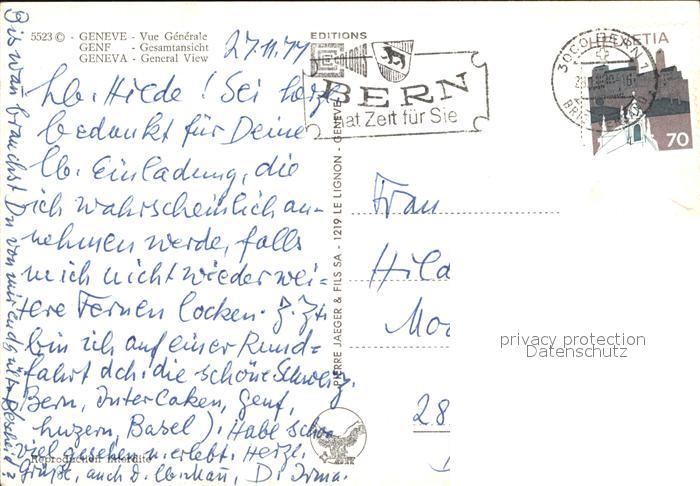 5523 © - GENEVE - Vue Générale
GENF - Gesamtansicht
GENEVA - General View
EDITIONS
27.11.77
Lb. Hilde! Sei herzl.
bedankt für Deine
lb. Einladung, die
ich wahrscheinlich an-
nehmen werde, falls
mich nicht wieder wei-
tere Fernen locken. Z. Zt.
bin ich auf einer Rund-
fahrt dch. die schöne Schweiz.
Bern, Interlaken, Genf,
Luzern, Basel). Habe schon
viel gesehen u. erlebt. Herzl.
Grüße, auch d. lb. Irma.
Bis wann brauchst Du von mir endgült. Bescheid?
Reproduction interdite
PIERRE JAEGER & FILS SA - 1219 LE LIGNON - GENEVE
BERN
hat Zeit für Sie
3000 BERN 1
HELVETIA
70
Frau
Hild
Mo
28
privacy protection
Datenschutz